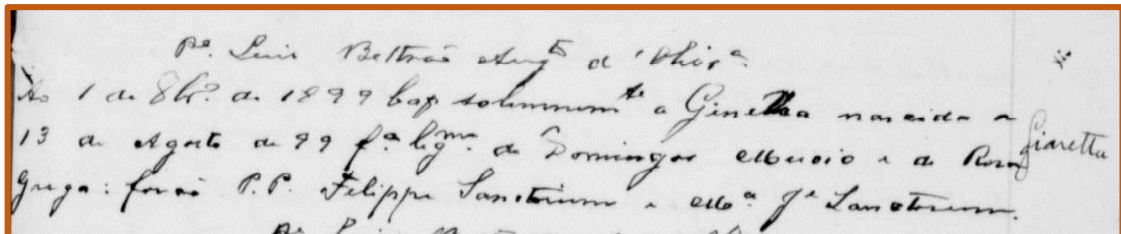 Pe. Luis Beltrão Augto d'Olivra.
Ao 1 de 8bro. de 1899 bap solemnemte a Ginetta nascida a
13 de Agosto de 99 fa. legma. de Domingos Mucio e de Rosa
Grega: forão P.P. Filippe Sanctorum e Ma. Je Sanctorum.
Giaretta